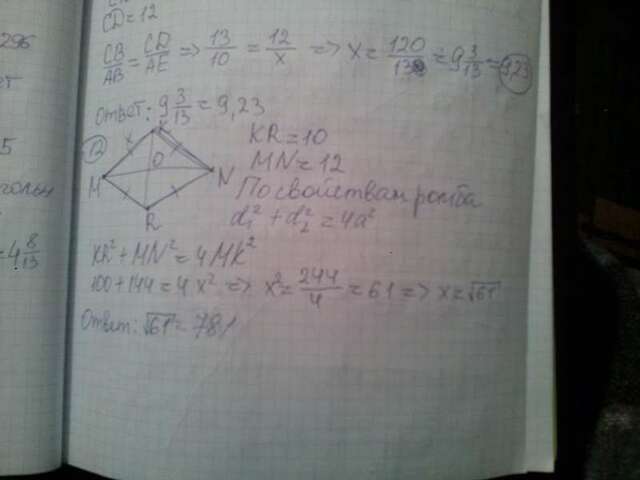 296
CD=12
CB/AB = CD/AE => 13/10 = 12/x => x = 120/13 = 9 3/13 = 9,23
5
Ответ: 9 3/13 = 9,23
12
K
x
O
M
N
R
KR=10
MN=12
По свойствам ромба
d₁² + d₂² = 4a²
4 8/13
KR² + MN² = 4MK²
100+144 = 4x² => x² = 244/4 = 61 => x = √61
Ответ: √61 = 7,81